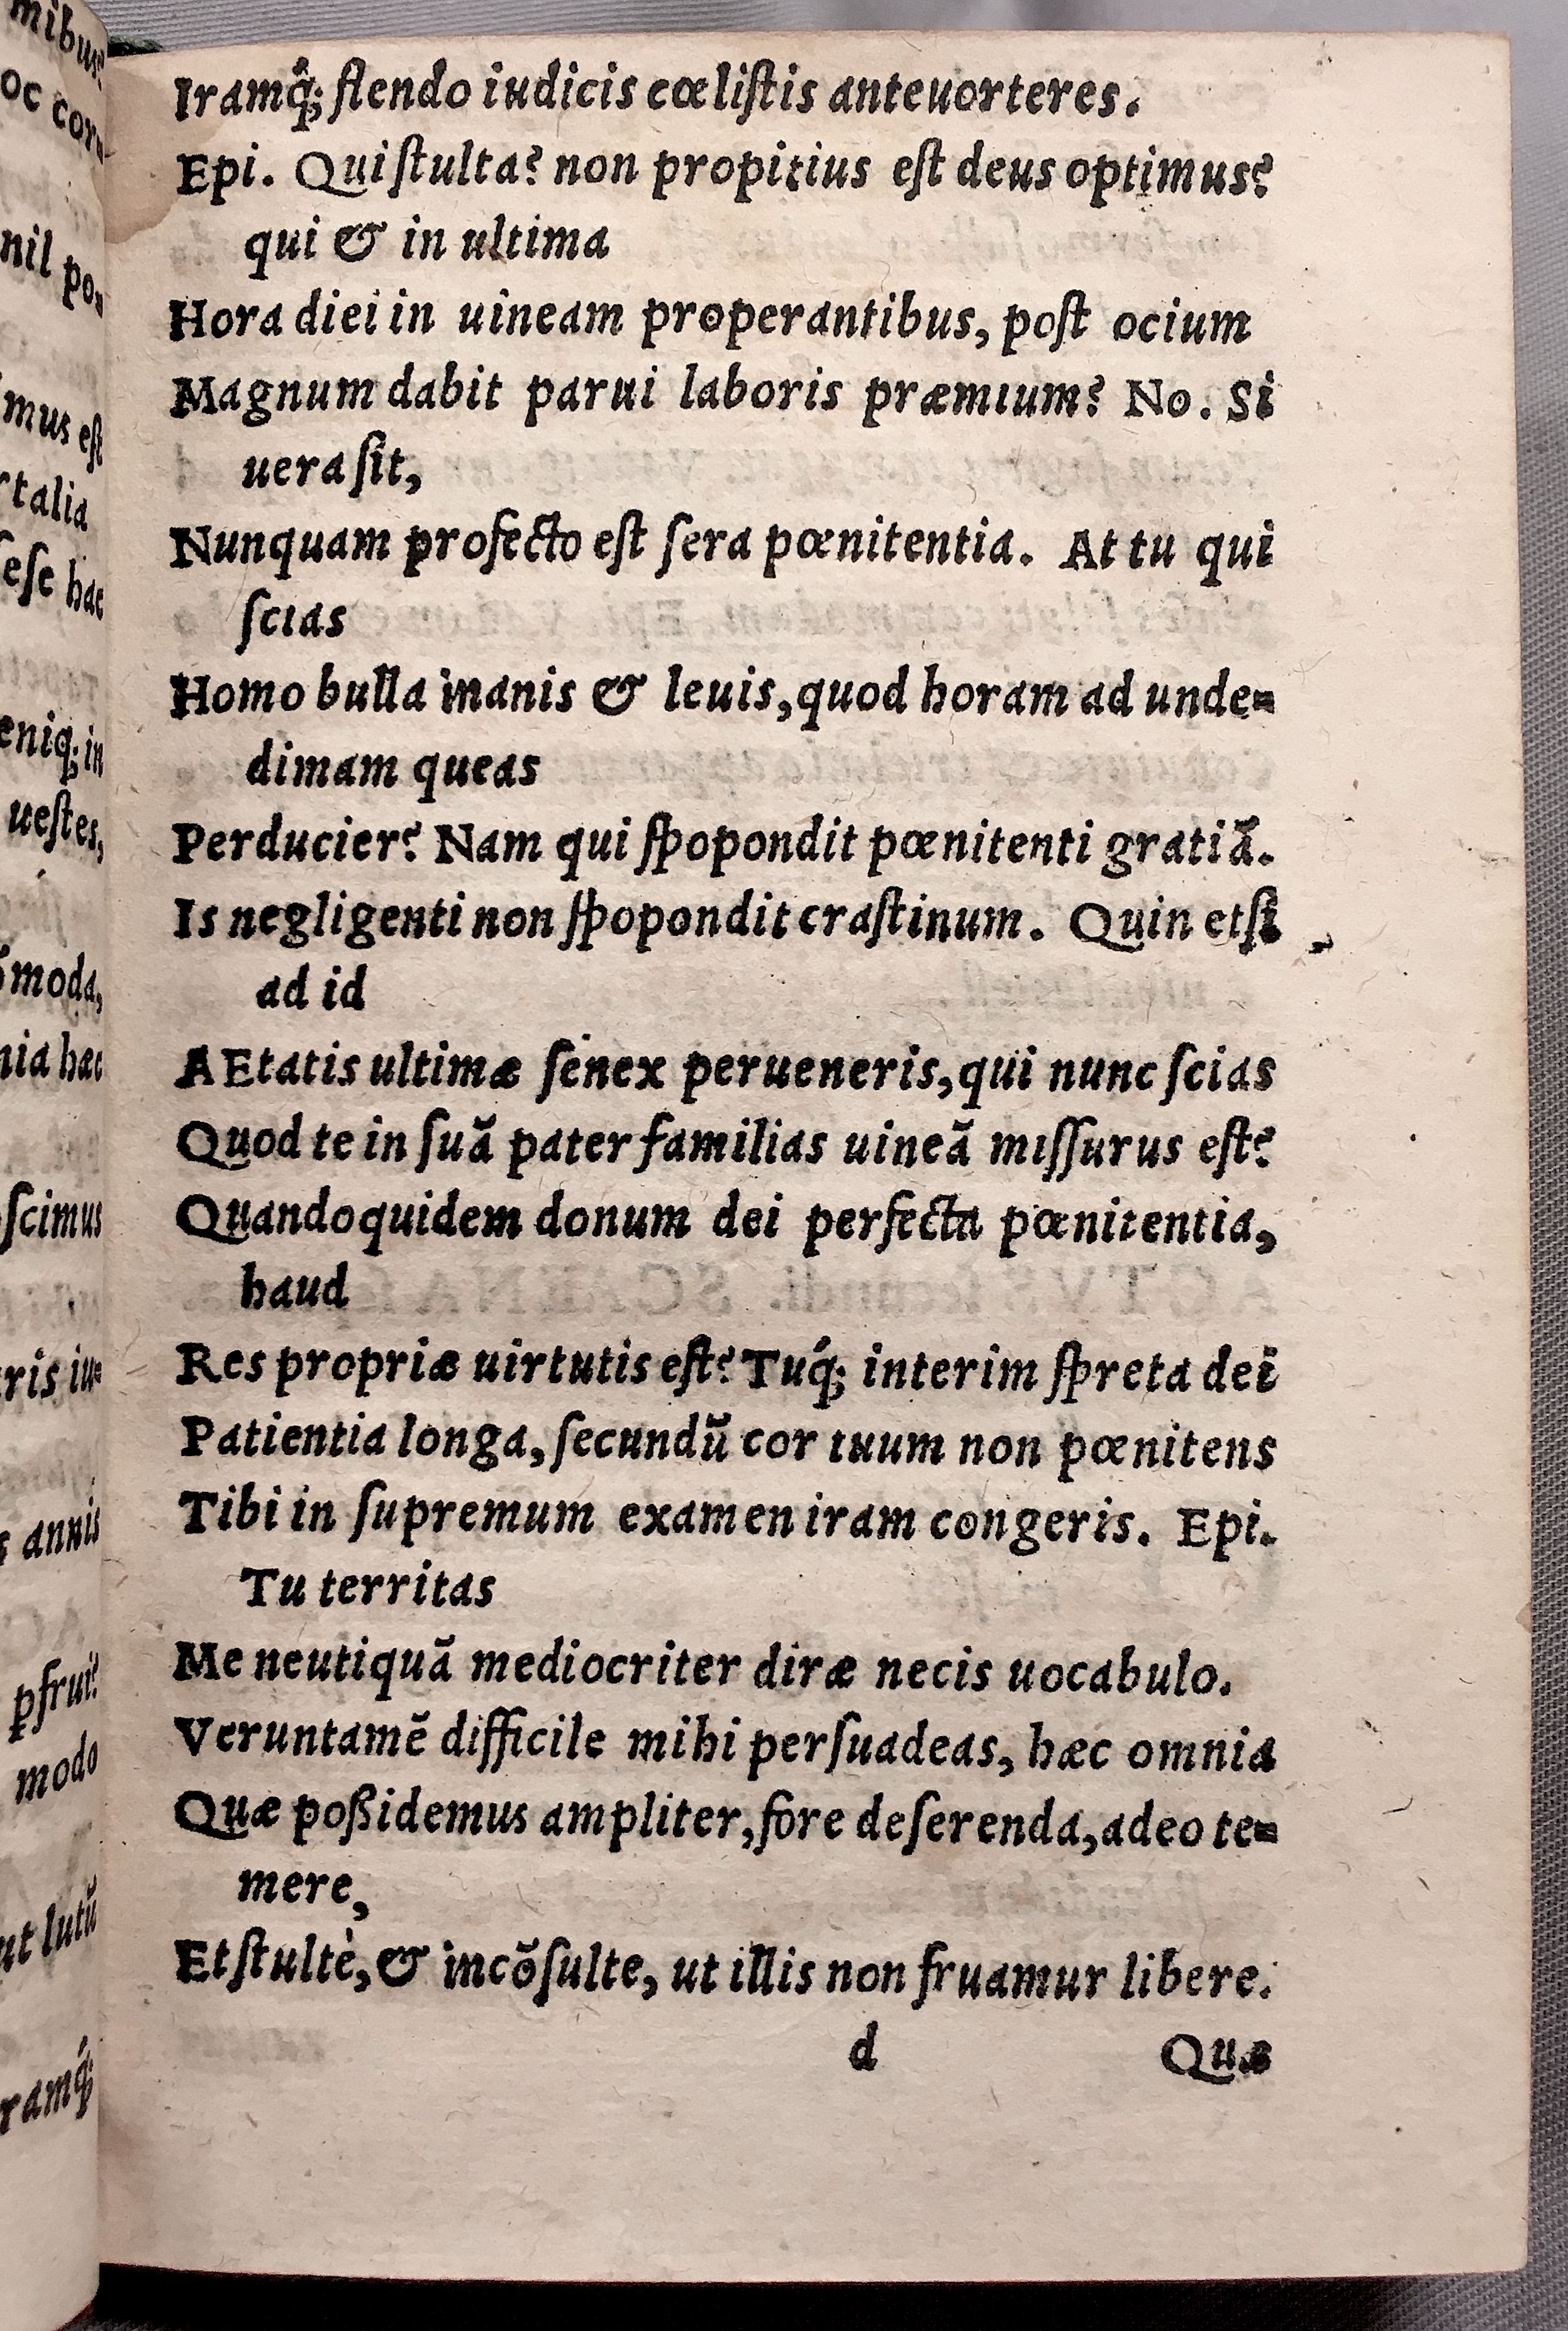 Iramq́; flendo iudicis cœliſtis anteuorteres.
Epi. Qui ſtulta? non propitius eſt deus optimus?
qui & in ultima
Hora diei in uineam properantibus, poſt ocium
Magnum dabit parui laboris præmium? No. Si
uera ſit,
Nunquam profecto eſt ſera pœnitentia. At tu qui
ſcias
Homo bulla inanis & leuis, quod horam ad unde=
dimam queas
Perducier? Nam qui ſpopondit pœnitenti gratiã.
Is negligenti non ſpopondit craſtinum. Quin etſi
ad id
AEtatis ultimæ ſenex perueneris, qui nunc ſcias
Quod te in ſuã pater familias uineã miſſurus eſt?
Quandoquidem donum dei perfecta pœnitentia,
haud
Res propriæ uirtutis eſt? Tuq́; interim ſpreta dei
Patientia longa, ſecundũ cor tuum non pœnitens
Tibi in ſupremum examen iram congeris. Epi.
Tu territas
Me neutiquã mediocriter diræ necis uocabulo.
Veruntamẽ difficile mihi perſuadeas, hæc omnia
Quæ poßidemus ampliter, fore deſerenda, adeo te=
mere,
Et ſtultè, & incõſulte, ut illis non fruamur libere.
d Quæ